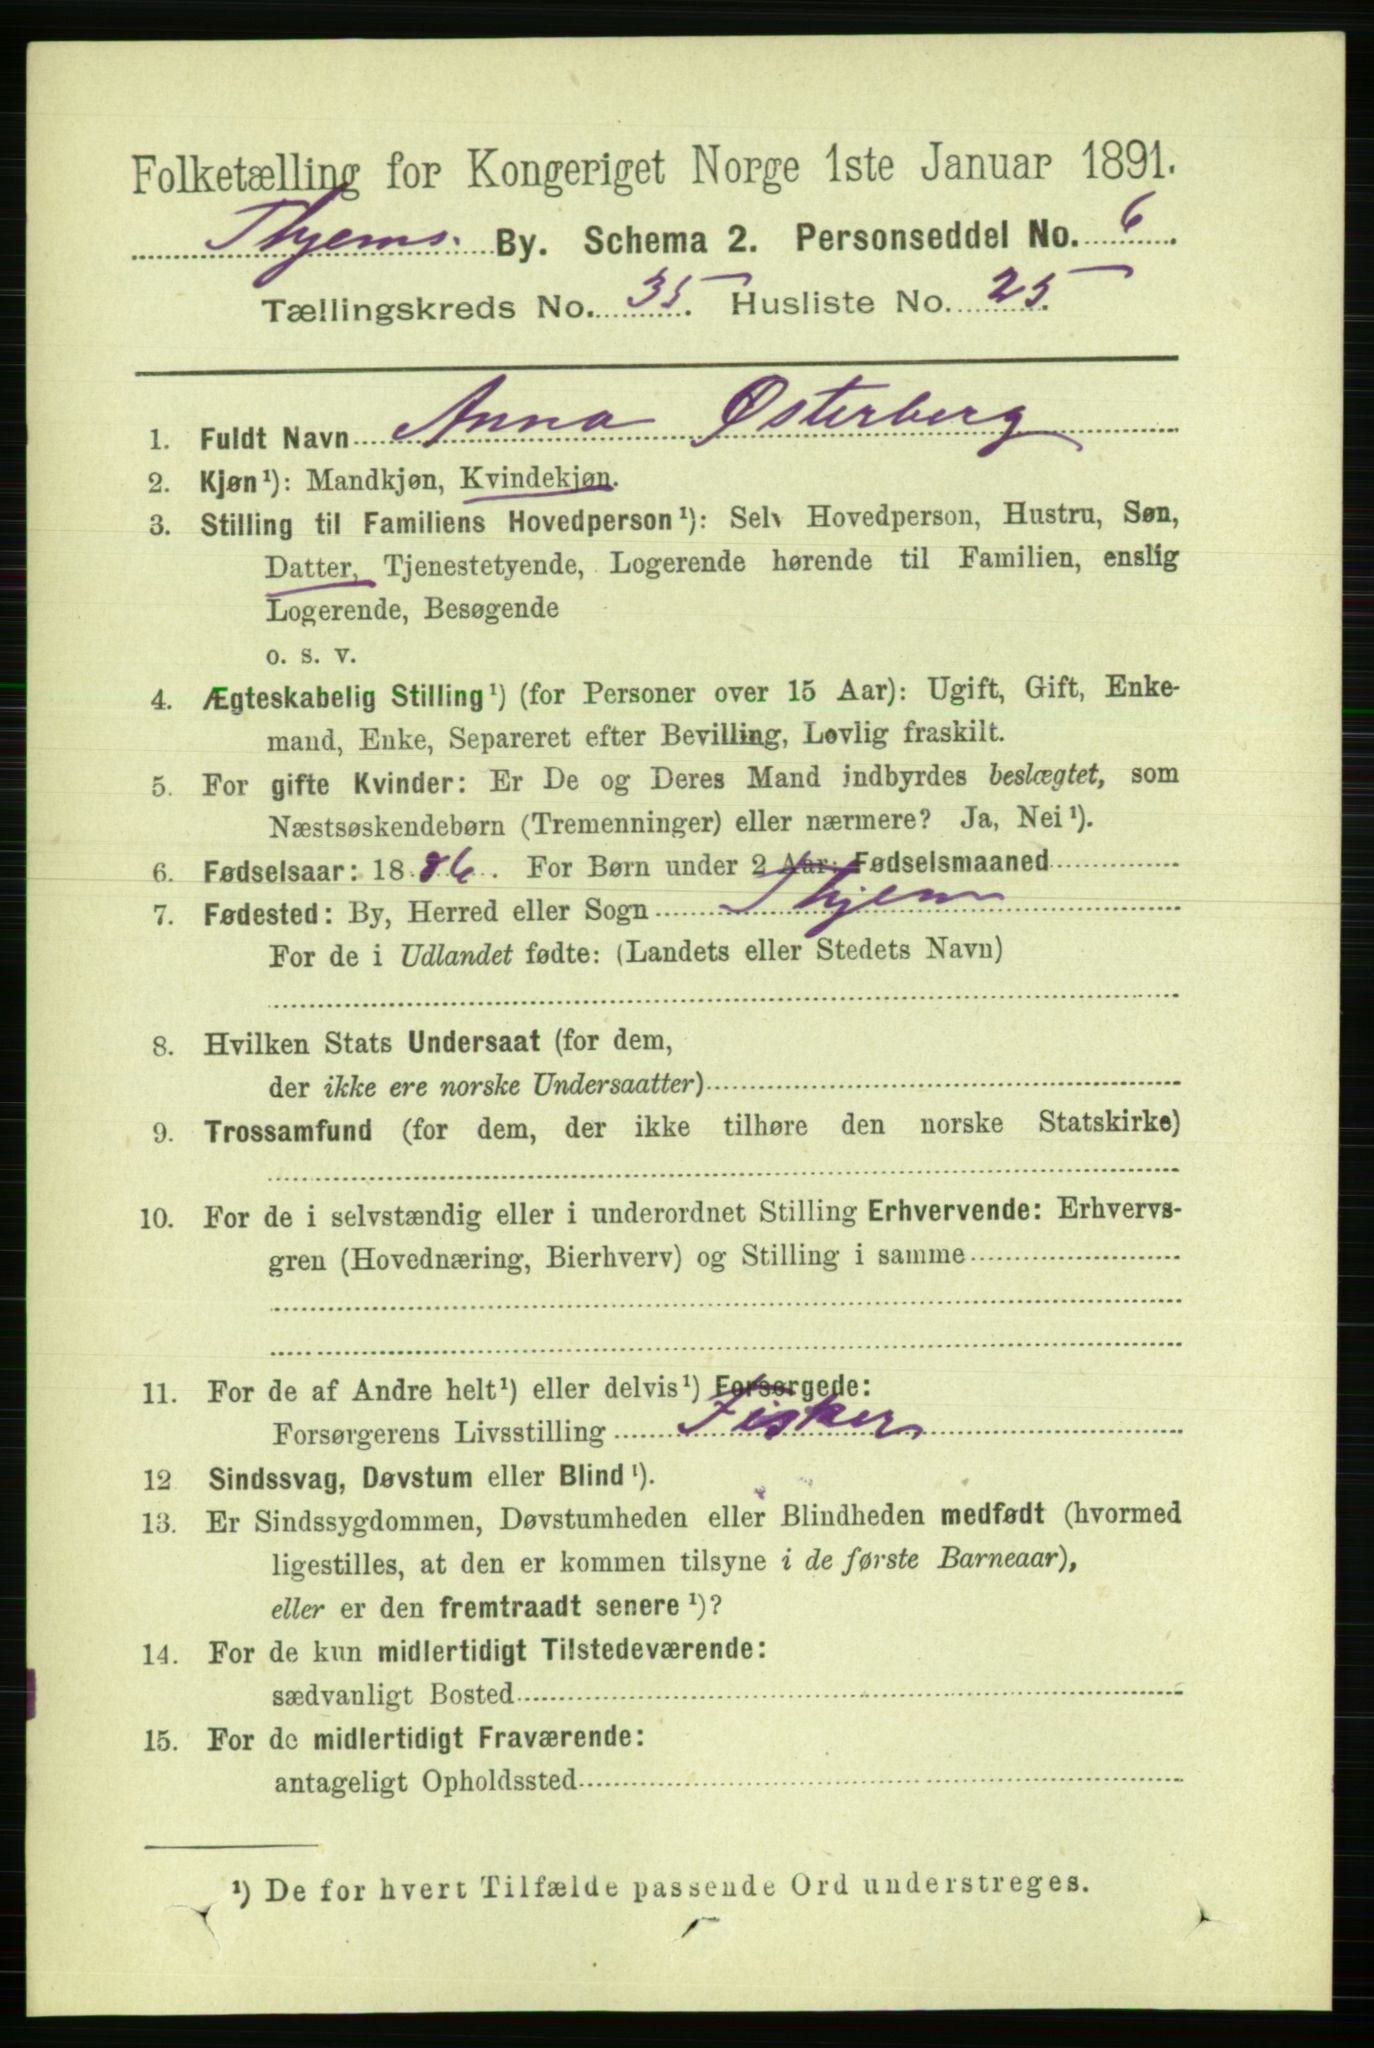 Folketælling for Kongeriget Norge 1ste Januar 1891.
Thjems. By. Schema 2. Personseddel No. 6.
Tællingskreds No. 35. Husliste No. 25.
1. Fuldt Navn Anna Østerberg
2. Kjøn¹): Mandkjøn, Kvindekjøn.
3. Stilling til Familiens Hovedperson¹): Selv Hovedperson, Hustru, Søn,
Datter, Tjenestetyende, Logerende hørende til Familien, enslig
Logerende, Besøgende
o. s. v.
4. Ægteskabelig Stilling¹) (for Personer over 15 Aar): Ugift, Gift, Enke-
mand, Enke, Separeret efter Bevilling, Løvlig fraskilt.
5. For gifte Kvinder: Er De og Deres Mand indbyrdes beslægtet, som
Næstsøskendebørn (Tremenninger) eller nærmere? Ja, Nei¹).
6. Fødselsaar: 1886. For Børn under 2 Aar: Fødselsmaaned
7. Fødested: By, Herred eller Sogn Thjem
For de i Udlandet fødte: (Landets eller Stedets Navn)
8. Hvilken Stats Undersaat (for dem,
der ikke ere norske Undersaatter)
9. Trossamfund (for dem, der ikke tilhøre den norske Statskirke)
10. For de i selvstændig eller i underordnet Stilling Erhvervende: Erhvervs-
gren (Hovednæring, Bierhverv) og Stilling i samme
11. For de af Andre helt¹) eller delvis¹) Forsørgede:
Forsørgerens Livsstilling Fisker
12 Sindssvag, Døvstum eller Blind¹).
13. Er Sindssygdommen, Døvstumheden eller Blindheden medfødt (hvormed
ligestilles, at den er kommen tilsyne i de første Barneaar),
eller er den fremtraadt senere¹)?
14. For de kun midlertidigt Tilstedeværende:
sædvanligt Bosted
15. For de midlertidigt Fraværende:
antageligt Opholdssted
¹) De for hvert Tilfælde passende Ord understreges.